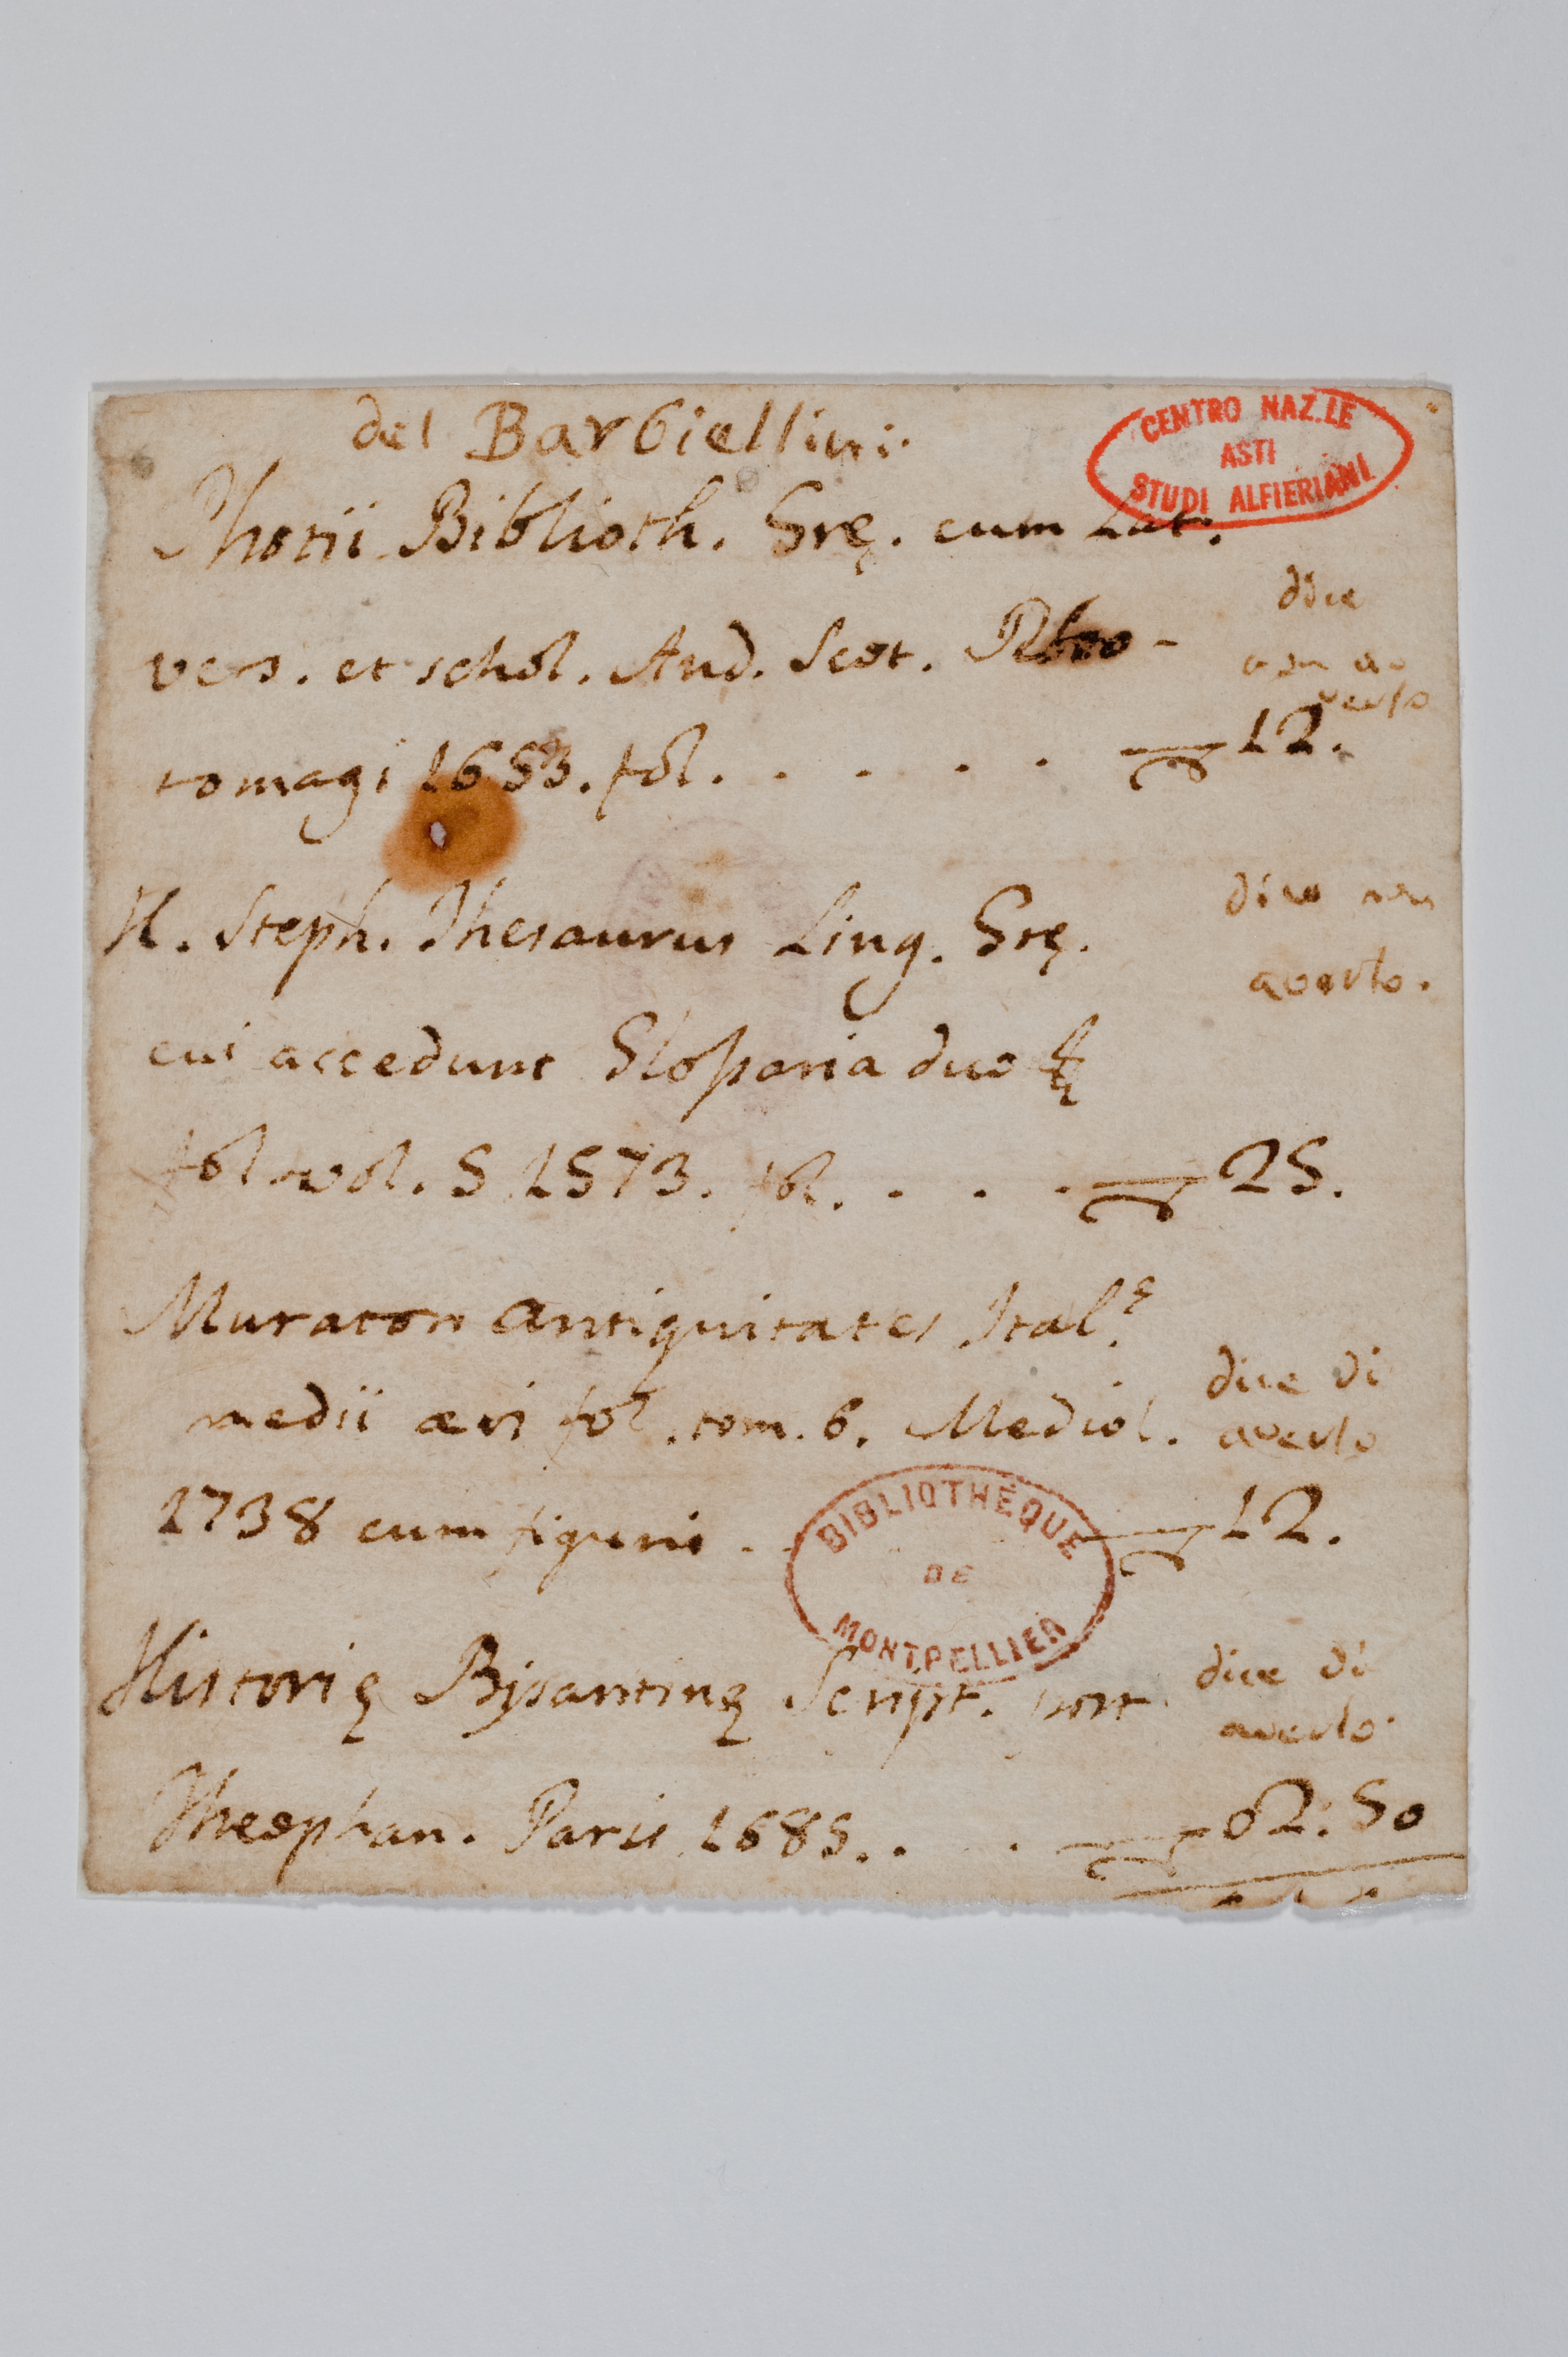 del Barbiellini.
CENTRO NAZ.LE
ASTI
STUDI ALFIERIANI
Photii Biblioth. Gre. cum Lat.
vers. et schol. And. Scot. Rhoo-
dice
non a-
verlo
tomagi 1653. fol. . . . . . 12.
H. Steph. Thesaurus Ling. Gre.
dice non
averlo.
cui accedunt Glossaria duo
fol vol. 5 1573. fol. . . . . 25.
Muratori Antiquitates Ital.e
medii ævi fol. tom. 6. Mediol.
dice di
averlo
1738 cum figuris . . 12.
BIBLIOTHÈQUE
DE
MONTPELLIER
Historie Bysantine Script. post
dice di
averlo.
Theophan. Paris 1685. . . 02:50